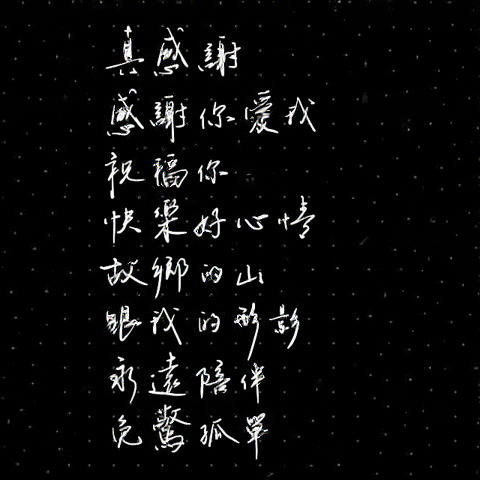 真感謝
感謝你愛我
祝福你
快樂好心情
故鄉的山
眼我的形影
永遠陪伴
免驚孤單